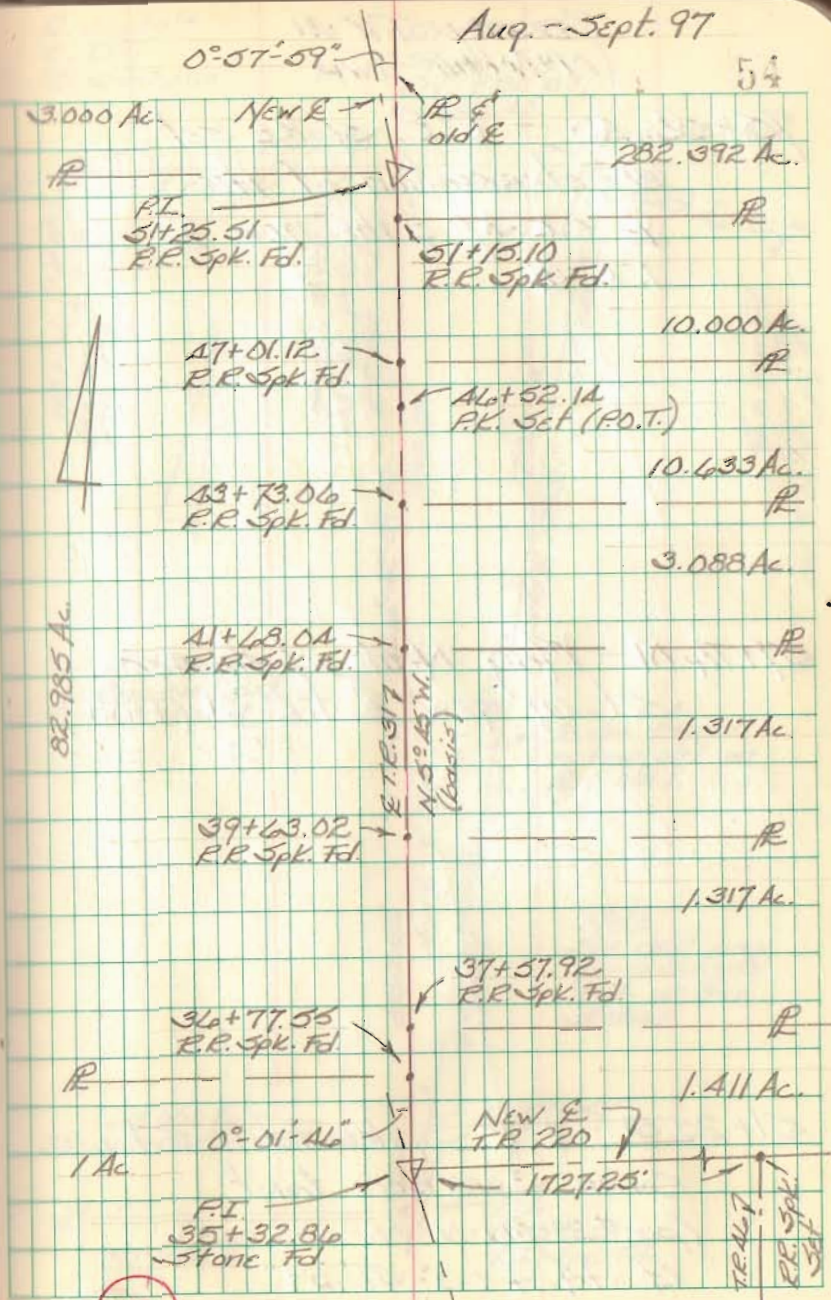 Aug. - Sept. 97
54
0°-57'-59"
3.000 Ac.
New ℄
PL &
old ℄
282.392 Ac.
PL
P.I.
51+25.51
R.R. Spk. Fd.
PL
51+15.10
R.R. Spk. Fd.
10.000 Ac.
47+01.12
R.R. Spk. Fd.
PL
46+52.14
P.K. Set (P.O.T.)
10.633 Ac.
43+73.06
R.R. Spk. Fd.
PL
3.088 Ac.
82.985 Ac.
41+68.04
R.R. Spk. Fd.
PL
℄ T.R. 317
N. 5° 45' W.
(basis)
1.317 Ac.
39+63.02
R.R. Spk. Fd.
PL
1.317 Ac.
37+57.92
R.R. Spk. Fd
36+77.55
R.R. Spk. Fd.
PL
PL
1.411 Ac.
0°-01'-46"
New ℄
T.R. 220
1 Ac
1727.25'
P.I.
35+32.86
Stone Fd.
T.R. 467
R.R. Spk.
Set